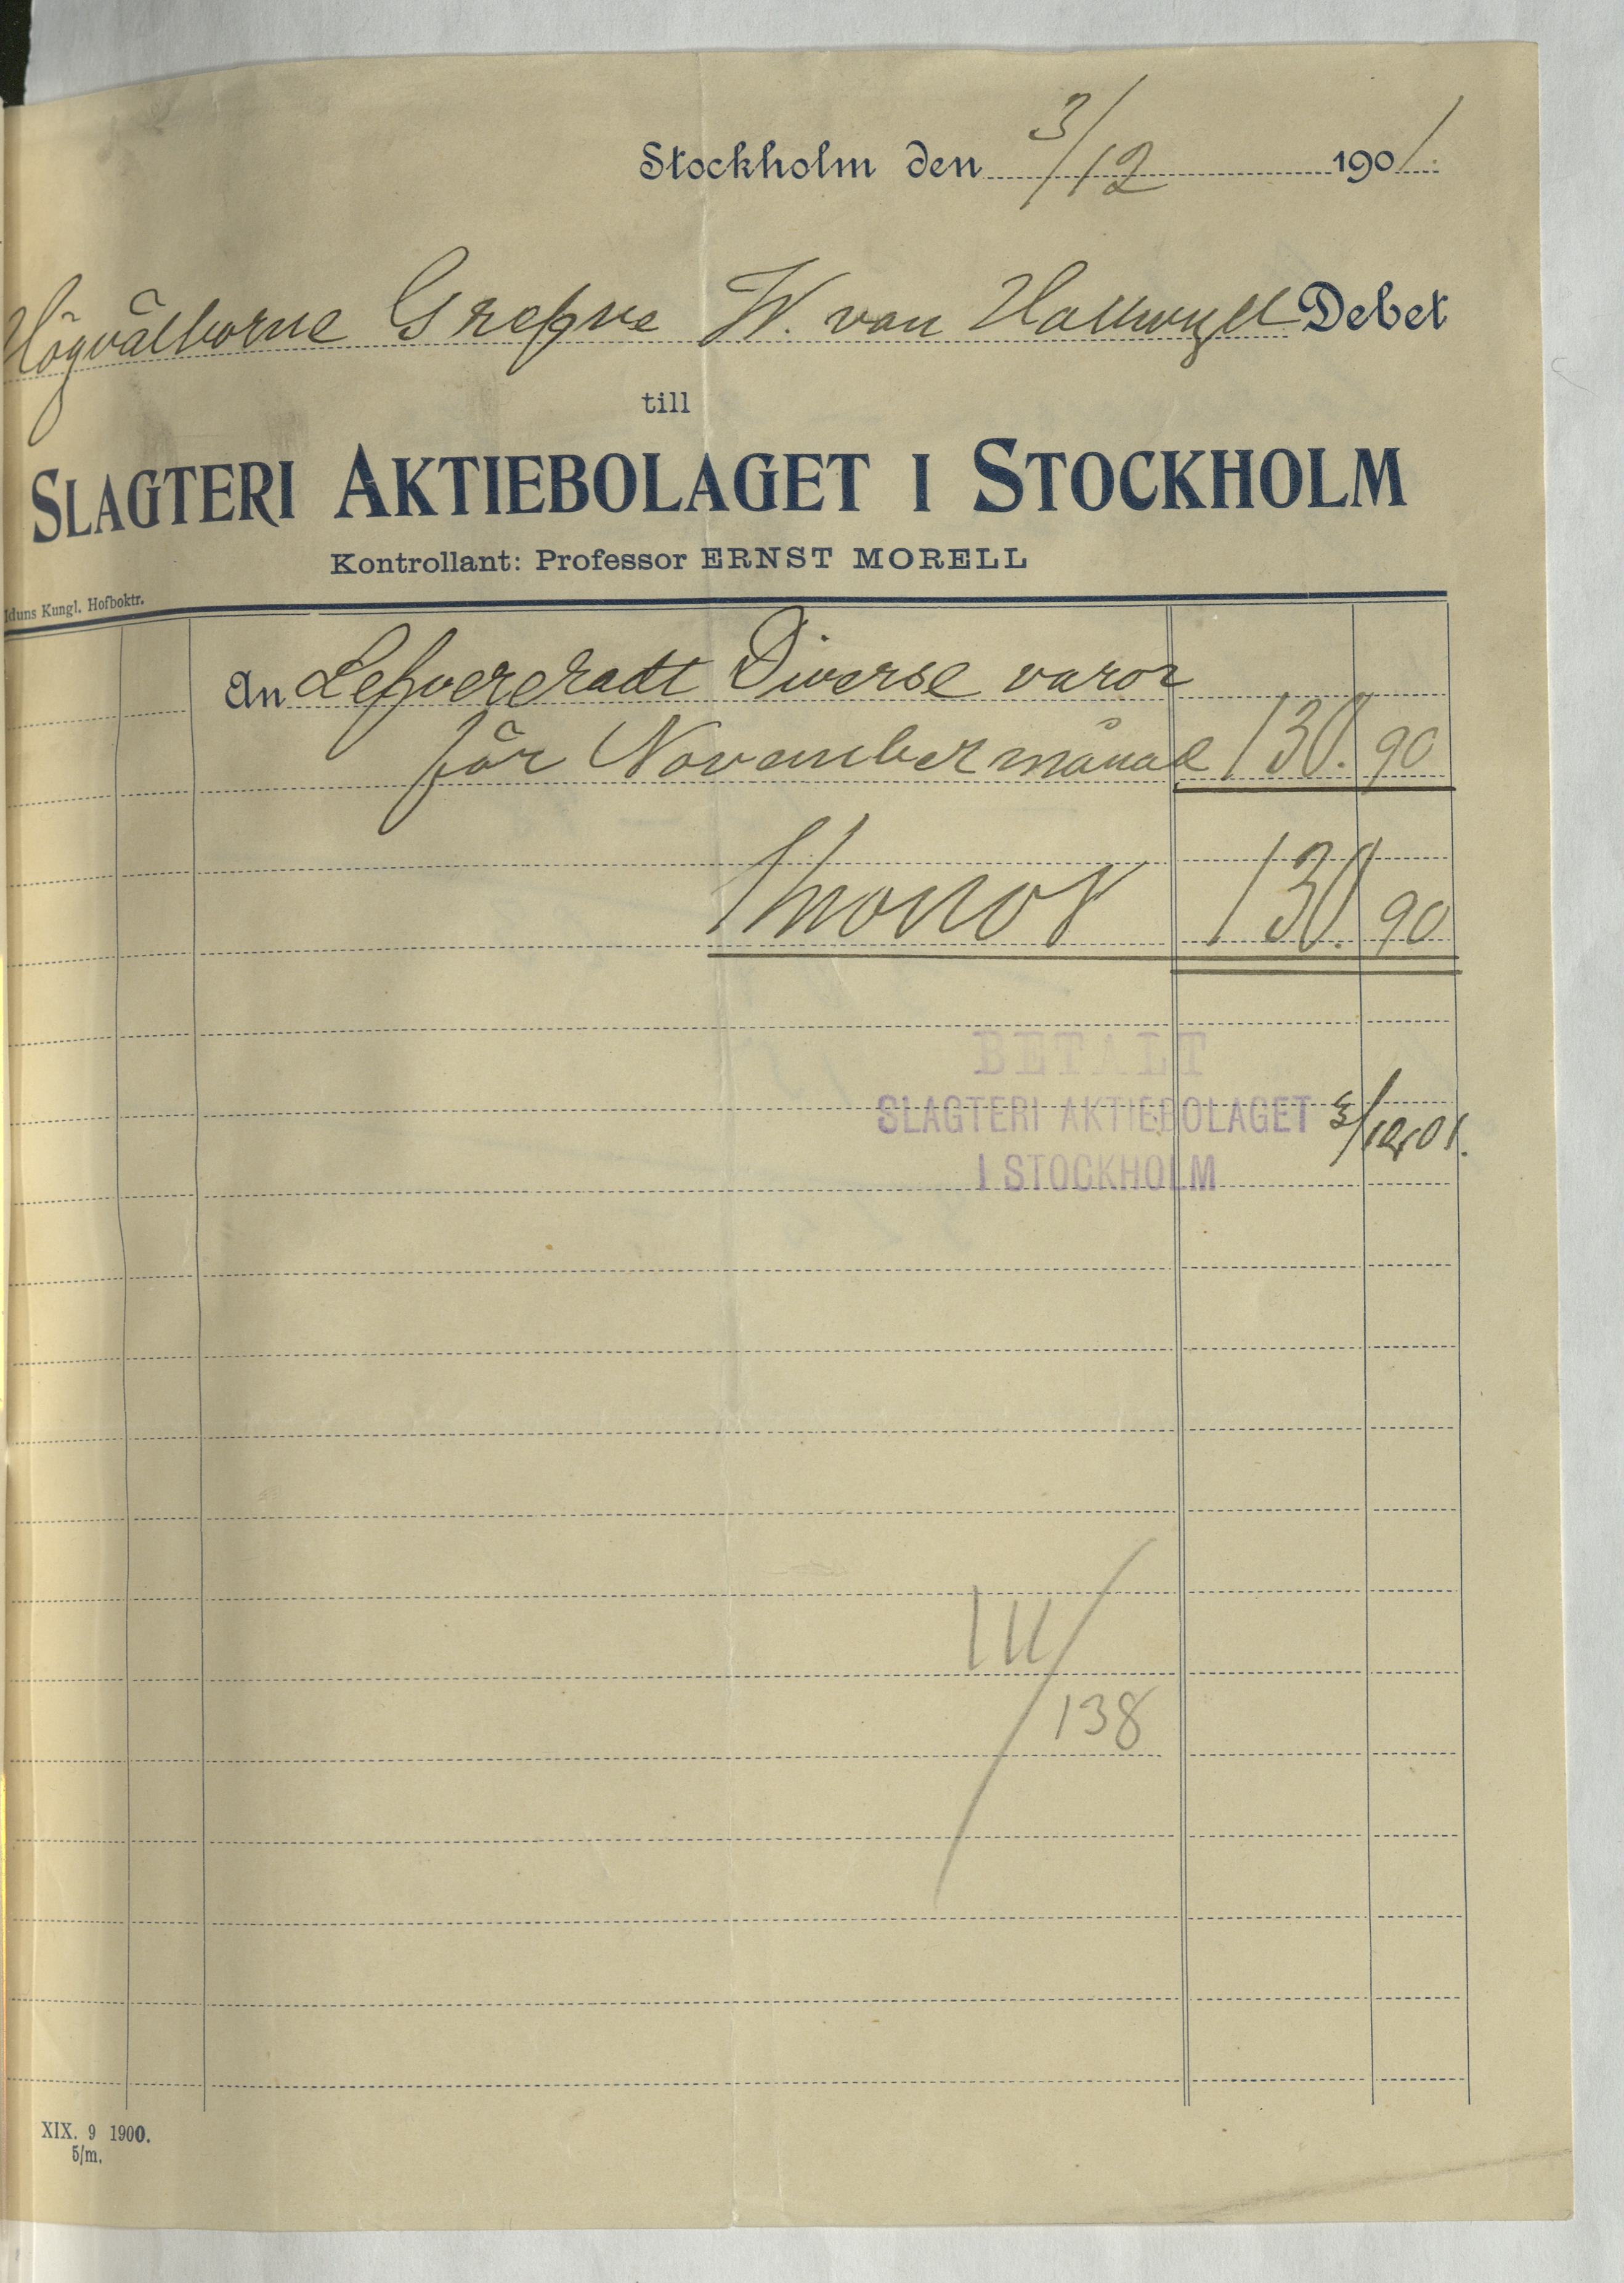 Stockholm den 3/12 1901.
Högvälborne Grefve W. von Hallwyll Debet
till
SLAGTERI AKTIEBOLAGET I STOCKHOLM
Kontrollant: Professor ERNST MORELL
Iduns Kungl. Hofboktr.
An Lefvereradt Diverse varor
för November månad 130. 90
Kronor 130. 90
BETALT
SLAGTERI AKTIEBOLAGET 3/12 01.
I STOCKHOLM
III/138
XIX. 9 1900.
5/m.